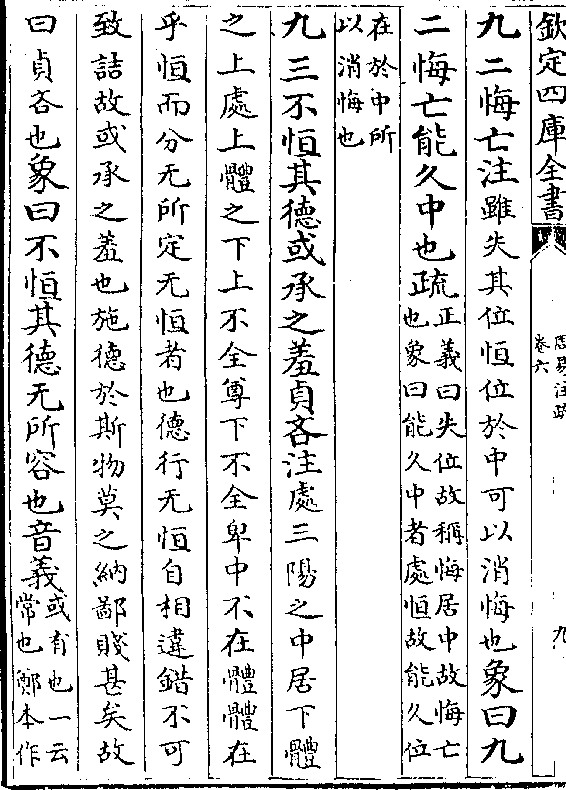 欽定四庫全書
周易注疏
卷六
九
九二悔亡注雖失其位恒位於中可以消悔也象曰九
二悔亡能久中也疏正義曰失位故稱悔居中故悔亡
也象曰能久中者處恒故能久位
在於中所
以消悔也
九三不恒其德或承之羞貞吝注處三陽之中居下體
之上處上體之下上不全尊下不全卑中不在體體在
乎恒而分无所定无恒者也德行无恒自相違錯不可
致詰故或承之羞也施德於斯物莫之納鄙賤甚矣故
曰貞吝也象曰不恒其德无所容也音義或有也一云
常也鄭本作